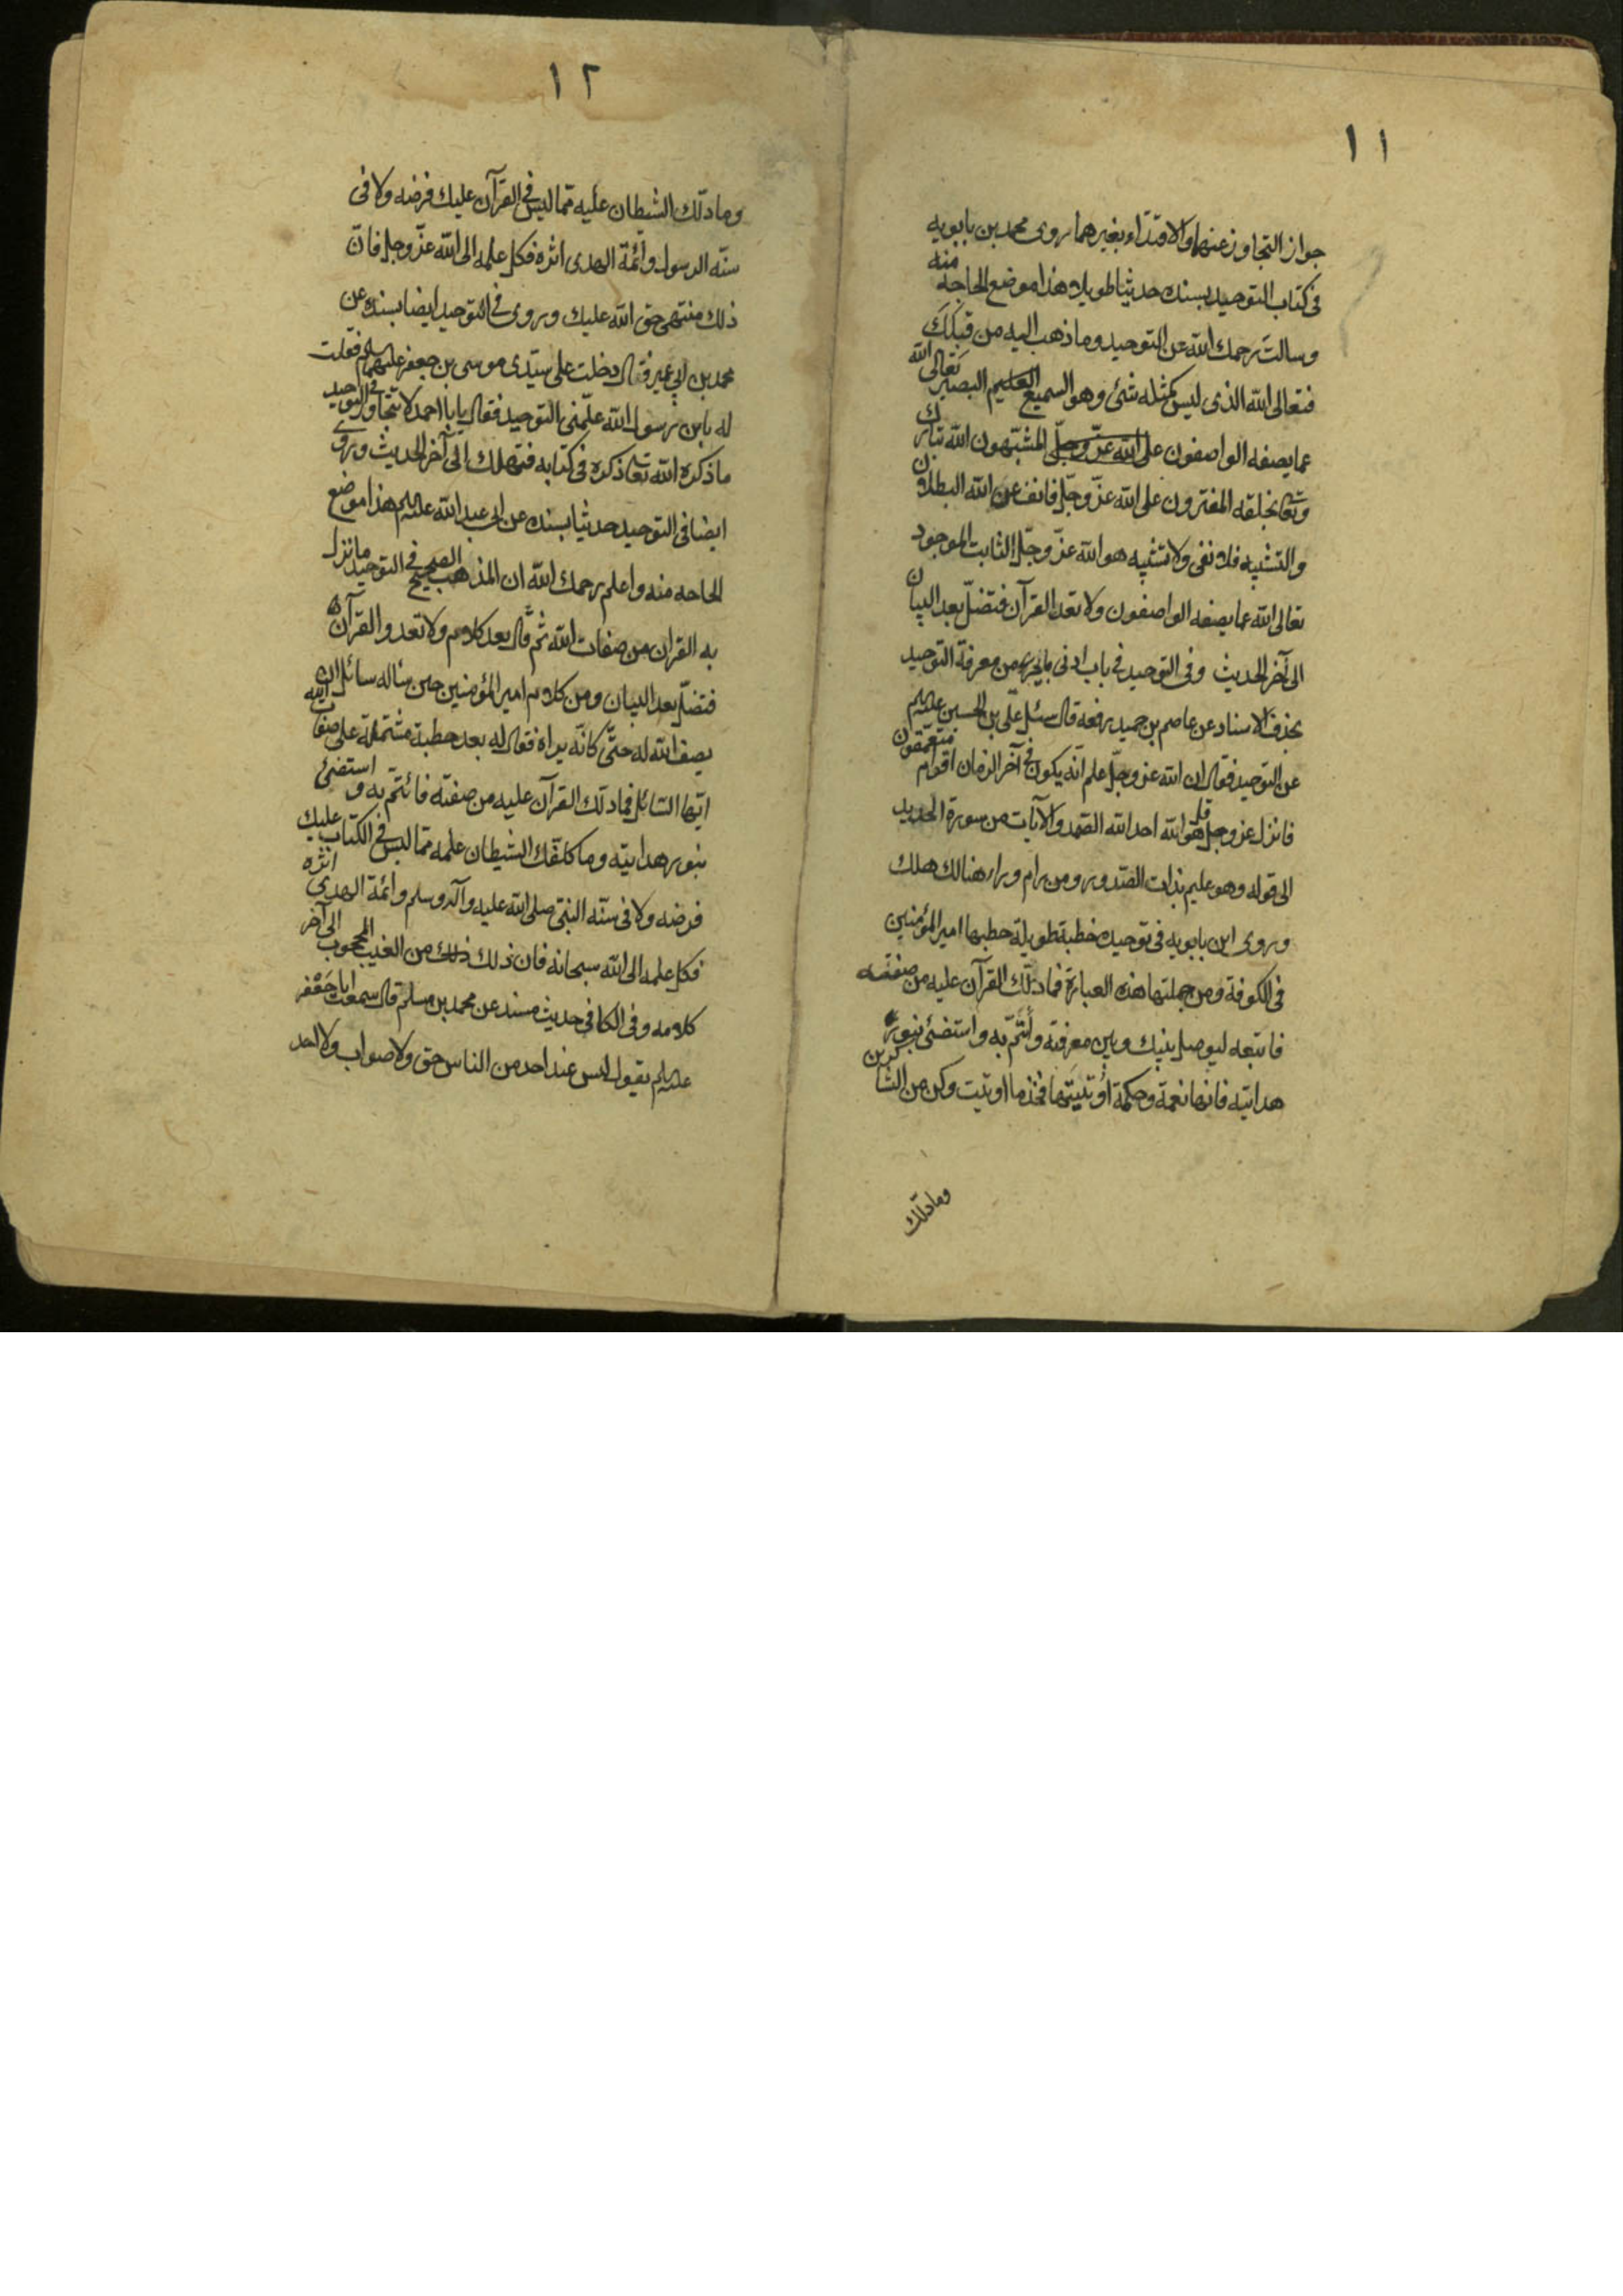 ١١
جواز التجاوز عنهما والاقتداء بغيرهما روى محمد بن بابويه
فى كتاب التوحيد بسنده حديثا طويلا هذا موضع الحاجة منه
وسالت رحمك الله عن التوحيد وما ذهب اليه من قبلك
فتعالى الله الذى ليس كمثله شئ وهو السميع العليم البصير تعالى الله
عما يصفه الواصفون على الله عزّ وجلّ المشبّهون الله تبارك
وتعالى بخلقه المفترون على الله عزّ وجلّ فانف عن الله البطلان
والتشبيه فلا نفى ولا تشبيه هو الله عزّ وجلّ الثابت الموجود
تعالى الله عما يصفه الواصفون ولا تعد القرآن فتضلّ بعد البيان
الى آخر الحديث وفى التوحيد فى باب ادنى ما يجزى من معرفة التوحيد
بحذف الاسناد عن عاصم بن حميد رفعه قال سئل علىّ بن الحسين عليهم
عن التوحيد فقال ان الله عز وجلّ علم انّه يكون فى آخر الزمان اقوام متعمّقون
فانزل عز وجل قل هو الله احد الله الصّمد والآيات من سورة الحديد
الى قوله وهو عليم بذات الصّدور ومن رام وراء هنالك هلك
وروى ابن بابويه فى توحيده خطبة طويلة خطبها امير المؤمنين
فى الكوفة ومن جملتها هذه العبارة فما دلّك القرآن عليه من صفته
فاتبعه ليوصل بينك وبين معرفته وأتمّ به واستضئ بنور
هدايته فانها نعمة وحكمة أوتيتها فخذ ما اوتيت وكن من الشاكرين
وما دلك
١٢
وما دلّك الشيطان عليه ممّا ليس فى القرآن عليك فرضه ولا فى
سنّه الرسول وائمّة الهدى اثره فكل علمه الى الله عزّ وجل فانّ
ذلك منتهى حق الله عليك وروى فى التوحيد ايضا بسنده عن
محمد بن ابى عمير قال دخلت على سيّدى موسى بن جعفر عليهما السلم فقلت
له يا بن رسول الله علّمنى التوحيد فقال يا با احمد لا تتجاوز فى التوحيد
ما ذكره الله تعا ذكره فى كتابه فتهلك الى آخر الحديث وروى
ايضا فى التوحيد حديثا بسنده عن ابى عبد الله عليهم هذا موضع
الحاجه منه واعلم رحمك الله ان المذهب الصحيح فى التوحيد ما نزل
به القران من صفات الله ثم قال بعد كلام ولا تعدوا القرآن
فتضلّ بعد البيان ومن كلام امير المؤمنين حين ساله سائل ان
يصف الله له حتّى كانّه يراه فقال له بعد خطبة مشتملة على صفات الله
ايّها السّائل فما دلّك القرآن عليه من صفته فائتمّ به و استضئ
بنور هدايته وما كلّفك الشيطان علمه ممّا ليس فى الكتاب عليك
فرضه ولا فى سنّه النبىّ صلى الله عليه وآله وسلم وائمة الهدى اثره
فكل علمه الى الله سبحانه فان ذلك ذلك من الغيب المحجوب الى آخر
كلامه وفى الكافى حديث مسند عن محمد بن مسلم قال سمعت ابا جعفر
عليهم يقول ليس عند احد من الناس حق ولا صواب ولا احد